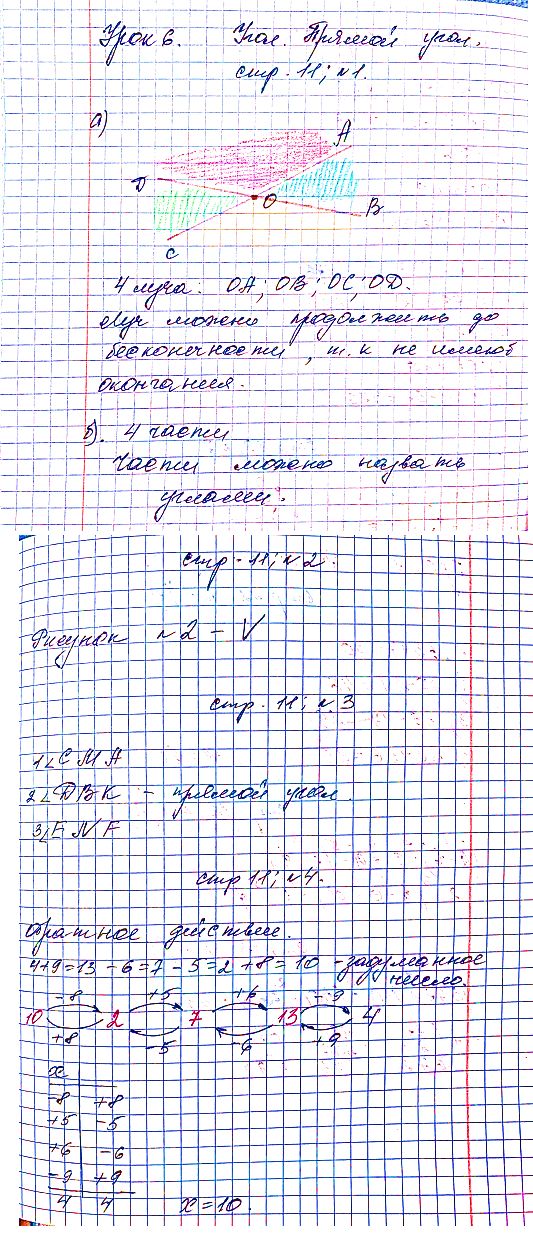 Урок 6. Угол. Прямой угол.
стр. 11; №1.
а)
A
D
O
B
C
4 луча: OA; OB; OC; OD.
Луч можно продолжить до
бесконечности, т.к не имеют
окончания.
б). 4 части
Части можно назвать
углами.
стр. 11; №2.
Рисунок №2 - V
стр. 11; №3
1∠CMA
2∠DBK - прямой угол.
3∠ENF
стр 11; №4.
Обратное действие.
4+9=13-6=7-5=2+8=10 - задуманное
число.
-8 +5 +6 -9
10 2 7 13 4
+8 -5 -6 +9
x
-8 +8
+5 -5
+6 -6
-9 +9
4 4 x=10.